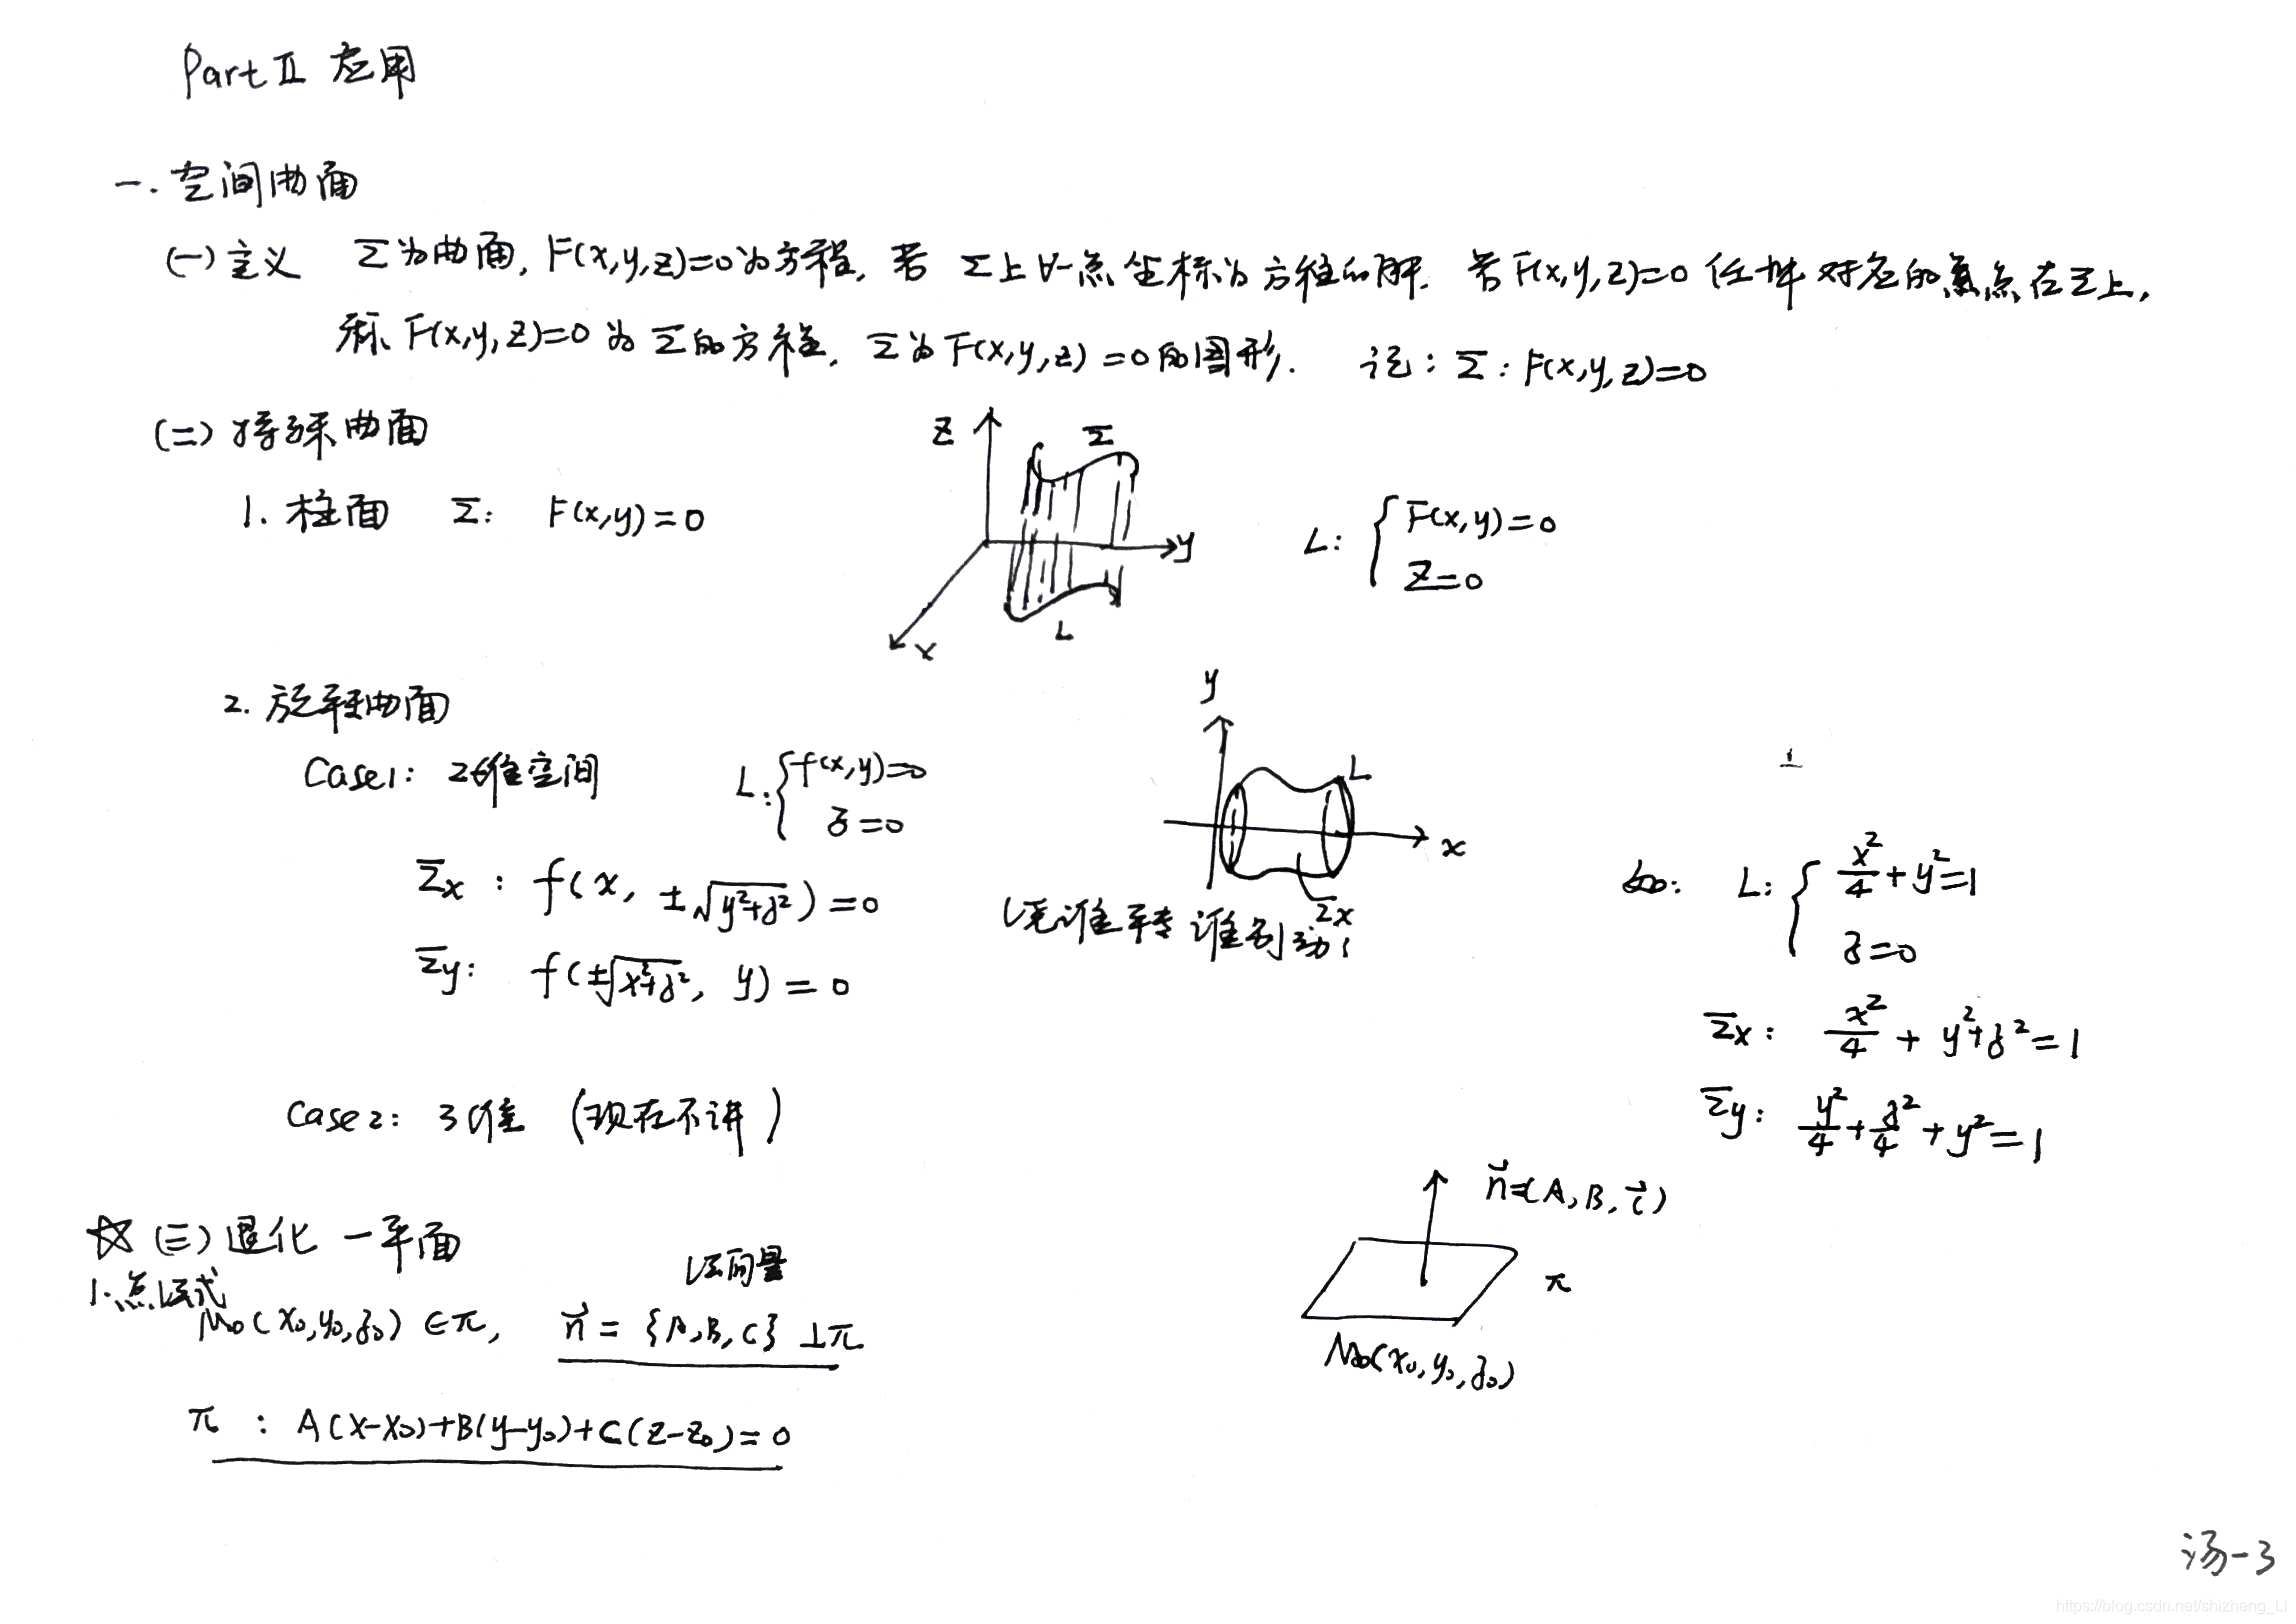 Part II 应用
一. 空间曲面
(一) 定义 Σ为曲面, F(x,y,z)=0为方程, 若 Σ上∀一点坐标为方程的解. 若F(x,y,z)=0 任一解 对应的点在Σ上,
称 F(x,y,z)=0 为 Σ的方程, Σ为 F(x,y,z)=0的图形. 记: Σ: F(x,y,z)=0
(二) 特殊曲面
1. 柱面 Σ: F(x,y)=0
z Σ y x L
L: { F(x,y)=0
z=0
2. 旋转曲面
Case1: 2维空间 L: { f(x,y)=0
z=0
Σx : f(x, ±√(y²+z²))=0
Σy: f(±√(x²+z²), y)=0
y L x Σx
绕谁转谁别动!
如: L: { x²/4+y²=1
z=0
Σx: x²/4 + y²+z²=1
Σy: y²/4+z²/4+y²=1
Case2: 3维 (现在不讲)
☆ (三) 退化 一平面
1.点法式
法向量
M₀(x₀,y₀,z₀)∈π, n⃗={A,B,C}⊥π
π : A(x-x₀)+B(y-y₀)+C(z-z₀)=0
n⃗=(A,B,C⃗)
π
M₀(x₀,y₀,z₀)
汤-3
https://blog.csdn.net/shizheng_Li